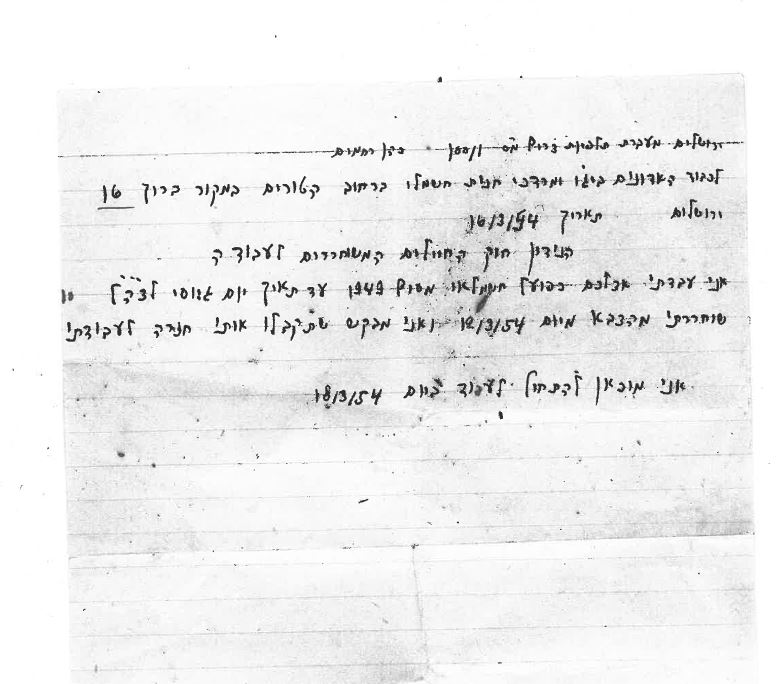 ירושלים מעברת תלפיות צריף מס' כהן רחמים
לכבוד האדונים ומרדכי חנות חשמל ברחוב הטורים במקור ברוך 16
ירושלים תאריך 16/3/54
הנידון חוק החיילים המשוחררים לעבודה
אני עבדתי אצלכם כפועל משנת 1949 עד תאריך יום גיוסי לצה"ל
שוחררתי מהצבא מיום 12/3/54 ואני מבקש שתקבלו אותי חזרה לעבודתי
אני מוכאן להתחיל לעבוד ביום 18/3/54